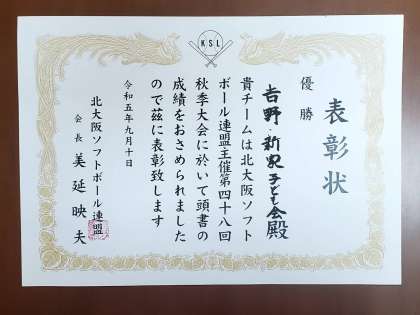 KSL
表彰状
優勝
吉野・新家子ども会殿
貴チームは北大阪ソフト
ボール連盟主催第四十八回
秋季大会に於いて頭書の
成績をおさめられました
ので茲に表彰致します
令和五年九月十日
北大阪ソフトボール連盟
会長 美延映夫